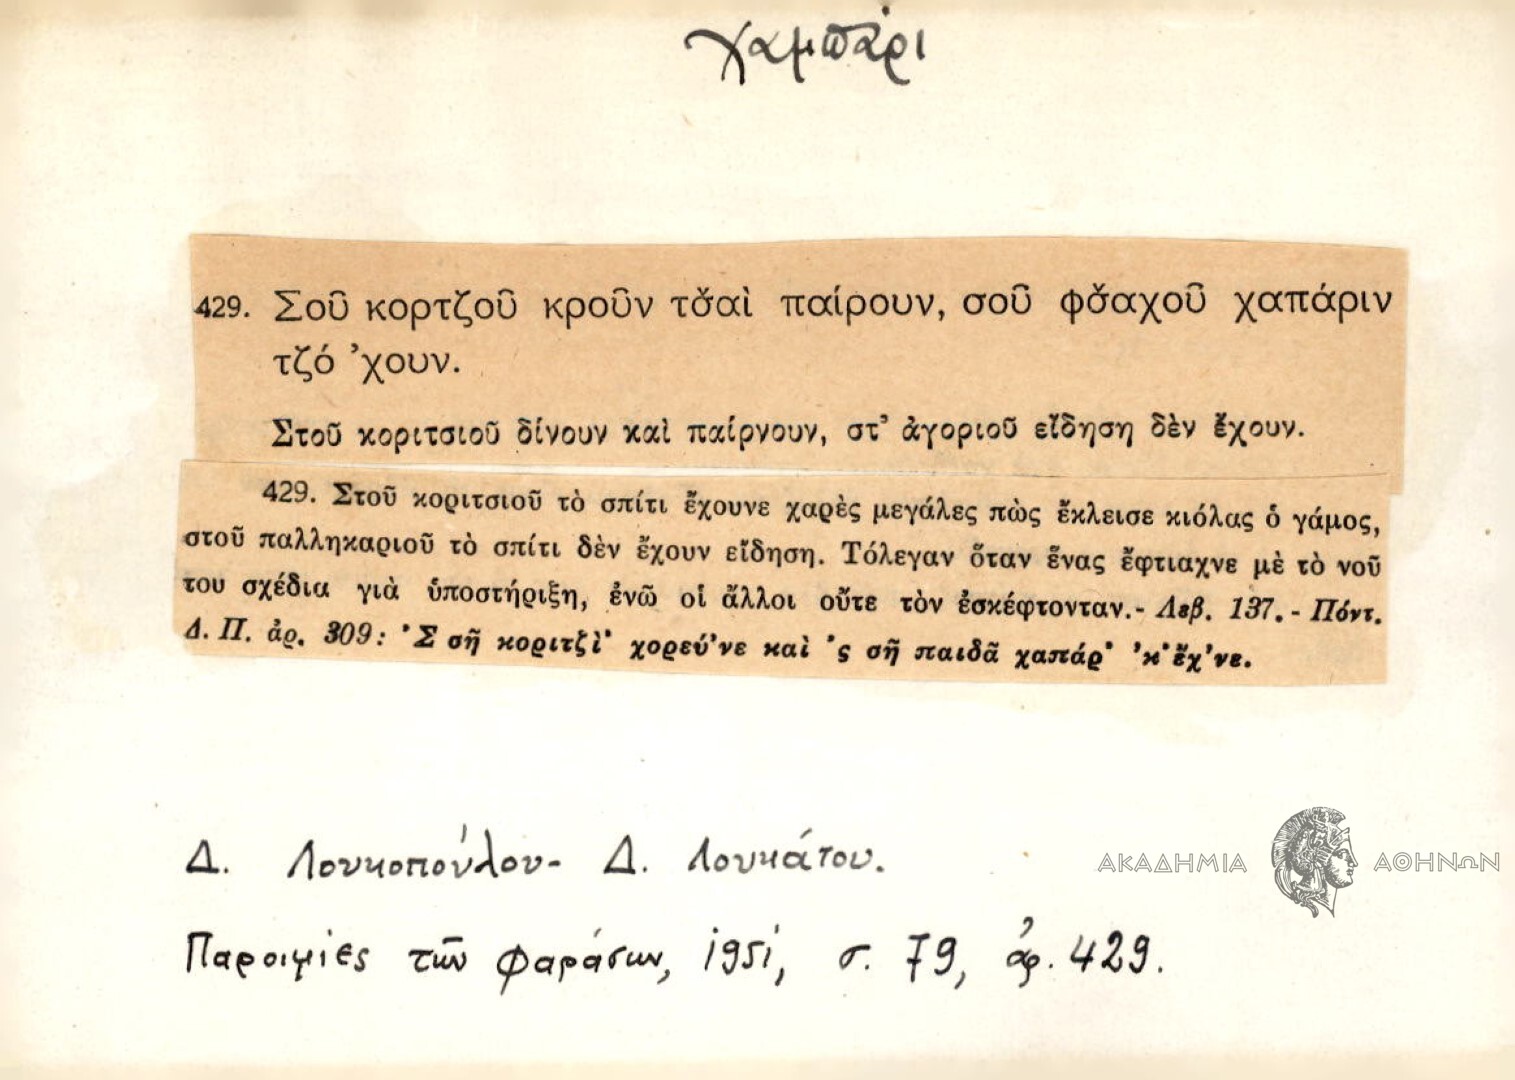 χαμπάρι
429. Σοῦ κορτζοῦ κροῦν τσ̆αὶ παίρουν, σοῦ φσ̆αχοῦ χαπάριν
τζό ’χουν.
Στοῦ κοριτσιοῦ δίνουν καὶ παίρνουν, στ’ ἀγοριοῦ εἴδηση δὲν ἔχουν.
429. Στοῦ κοριτσιοῦ τὸ σπίτι ἔχουνε χαρὲς μεγάλες πὼς ἔκλεισε κιόλας ὁ γάμος,
στοῦ παλληκαριοῦ τὸ σπίτι δὲν ἔχουν εἴδηση. Τόλεγαν ὅταν ἕνας ἔφτιαχνε μὲ τὸ νοῦ
του σχέδια γιὰ ὑποστήριξη, ἐνῶ οἱ ἄλλοι οὔτε τὸν ἐσκέφτονταν.- Λεβ. 137. - Πόντ.
Δ. Π. ἀρ. 309: ’Σ σῆ κοριτζὶ’ χορεύ’νε καὶ ’ς σῆ παιδᾶ χαπάρ’ ’κ’ ἔχ’νε.
Δ. Λουκοπούλου- Δ. Λουκάτου.
ΑΚΑΔΗΜΙΑ ΑΘΗΝΩΝ
Παροιμίες τῶν Φαράσων, 1951, σ. 79, ἀρ. 429.